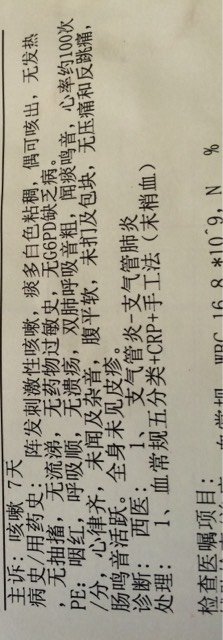 主诉: 咳嗽 7天
病史/用药史: 阵发刺激性咳嗽，痰多白色粘稠，偶可咳出，无发热
，无抽搐，无流涕，无药物过敏史，无G6PD缺乏病。
PE: 咽红，呼吸顺，无溃疡，双肺呼吸音粗，闻痰鸣音，心率约100次
/分，心律齐，未闻及杂音，腹平软，未扪及包块，无压痛和反跳痛，
肠鸣音活跃。全身未见皮疹。
诊断: 西医: 1、支气管炎-支气管肺炎
处理: 1、血常规五分类+CRP+手工法（末梢血）
检查医嘱项目:
WBC 16.8 *10^9, N %